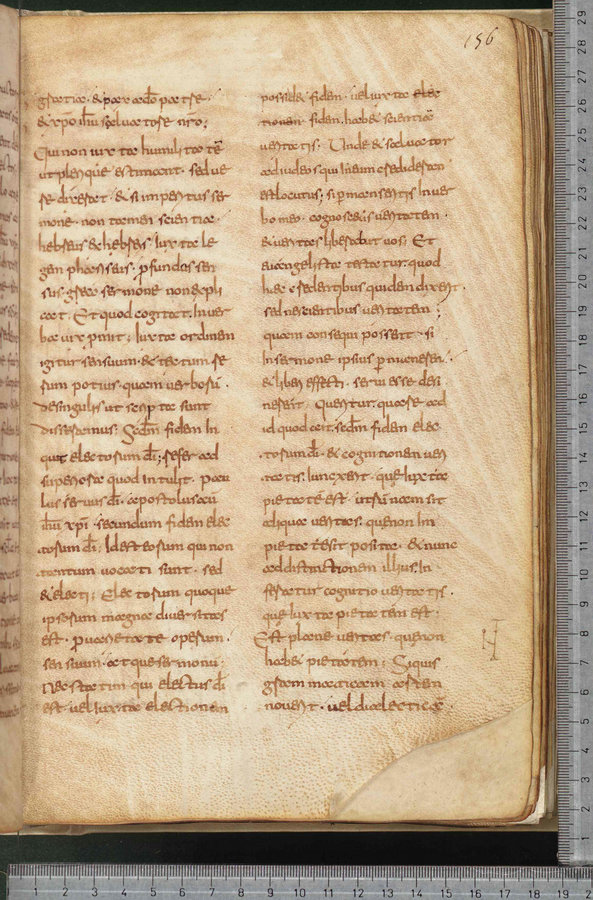 156
gratia · & pax a dō patre ·
& xpō ihū saluatore nro ;
Qui non iuxta humilitatē
ut plerique estimant · sed ue
re dixerat · & si imperitus ser
mone · non tamen scientia ·
hebreus & hebreis · iuxta le
gem phariseus · profundos sen
sus greco sermone non expli
cat · Et quod cogitat · In uer
ba uix promit ; Iuxta ordinem
igitur sensuum · & tractum se
rum potius · quam uerborū ·
desingulis ut ceptū sunt
disseramus ; Scdm fidem In
quit electorum dī ; refer ad
superiora quod Intulit · pau
lus seruus dī · apostolus aū
ihū xpī · secundum fidem elec
torum dī · Id est eorum qui non
tantum uocati sunt · sed
& electi ; Electorum quoque
ipsorum magna diuersitas
est · pro uarietate operum ·
sensuum · atque sermonū ·
Nec statim qui electus dī
est uel iuxta electionem
possid& fidem · uel iuxta elec
tionem fidem · hab& scientiā
ueritatis ; Unde & saluator
ad iudeos qui In eum crediderant
est locutus ; si permanseritis In uer
bo meo · cognoscetis ueritatem ·
& ueritas liberabit uos ; Et
euangelista testatur · quod
hec credentibus quidem dixerit ·
sed nescientibus ueritatem ;
quam consequi possent · si
In sermone ipsius permanerent ·
& liberi effecti · serui esse desi
nerent · queritur · quare ad
id quod erit · scdm fidem elec
torum dī · & cognitionem ueri
tatis · Iunxerit · que iuxta
pietatē est · utrū nam sit
aliqua ueritas · que non In
pietate sit posita · & nunc
ad distinctionem illius · In
feratur cognitio ueritatis ·
que iuxta pietatem est ·
Est plane ueritas · que non
habet pietatem ; Si quis
gramaticam artem
nouerit · uel dialecticā ·